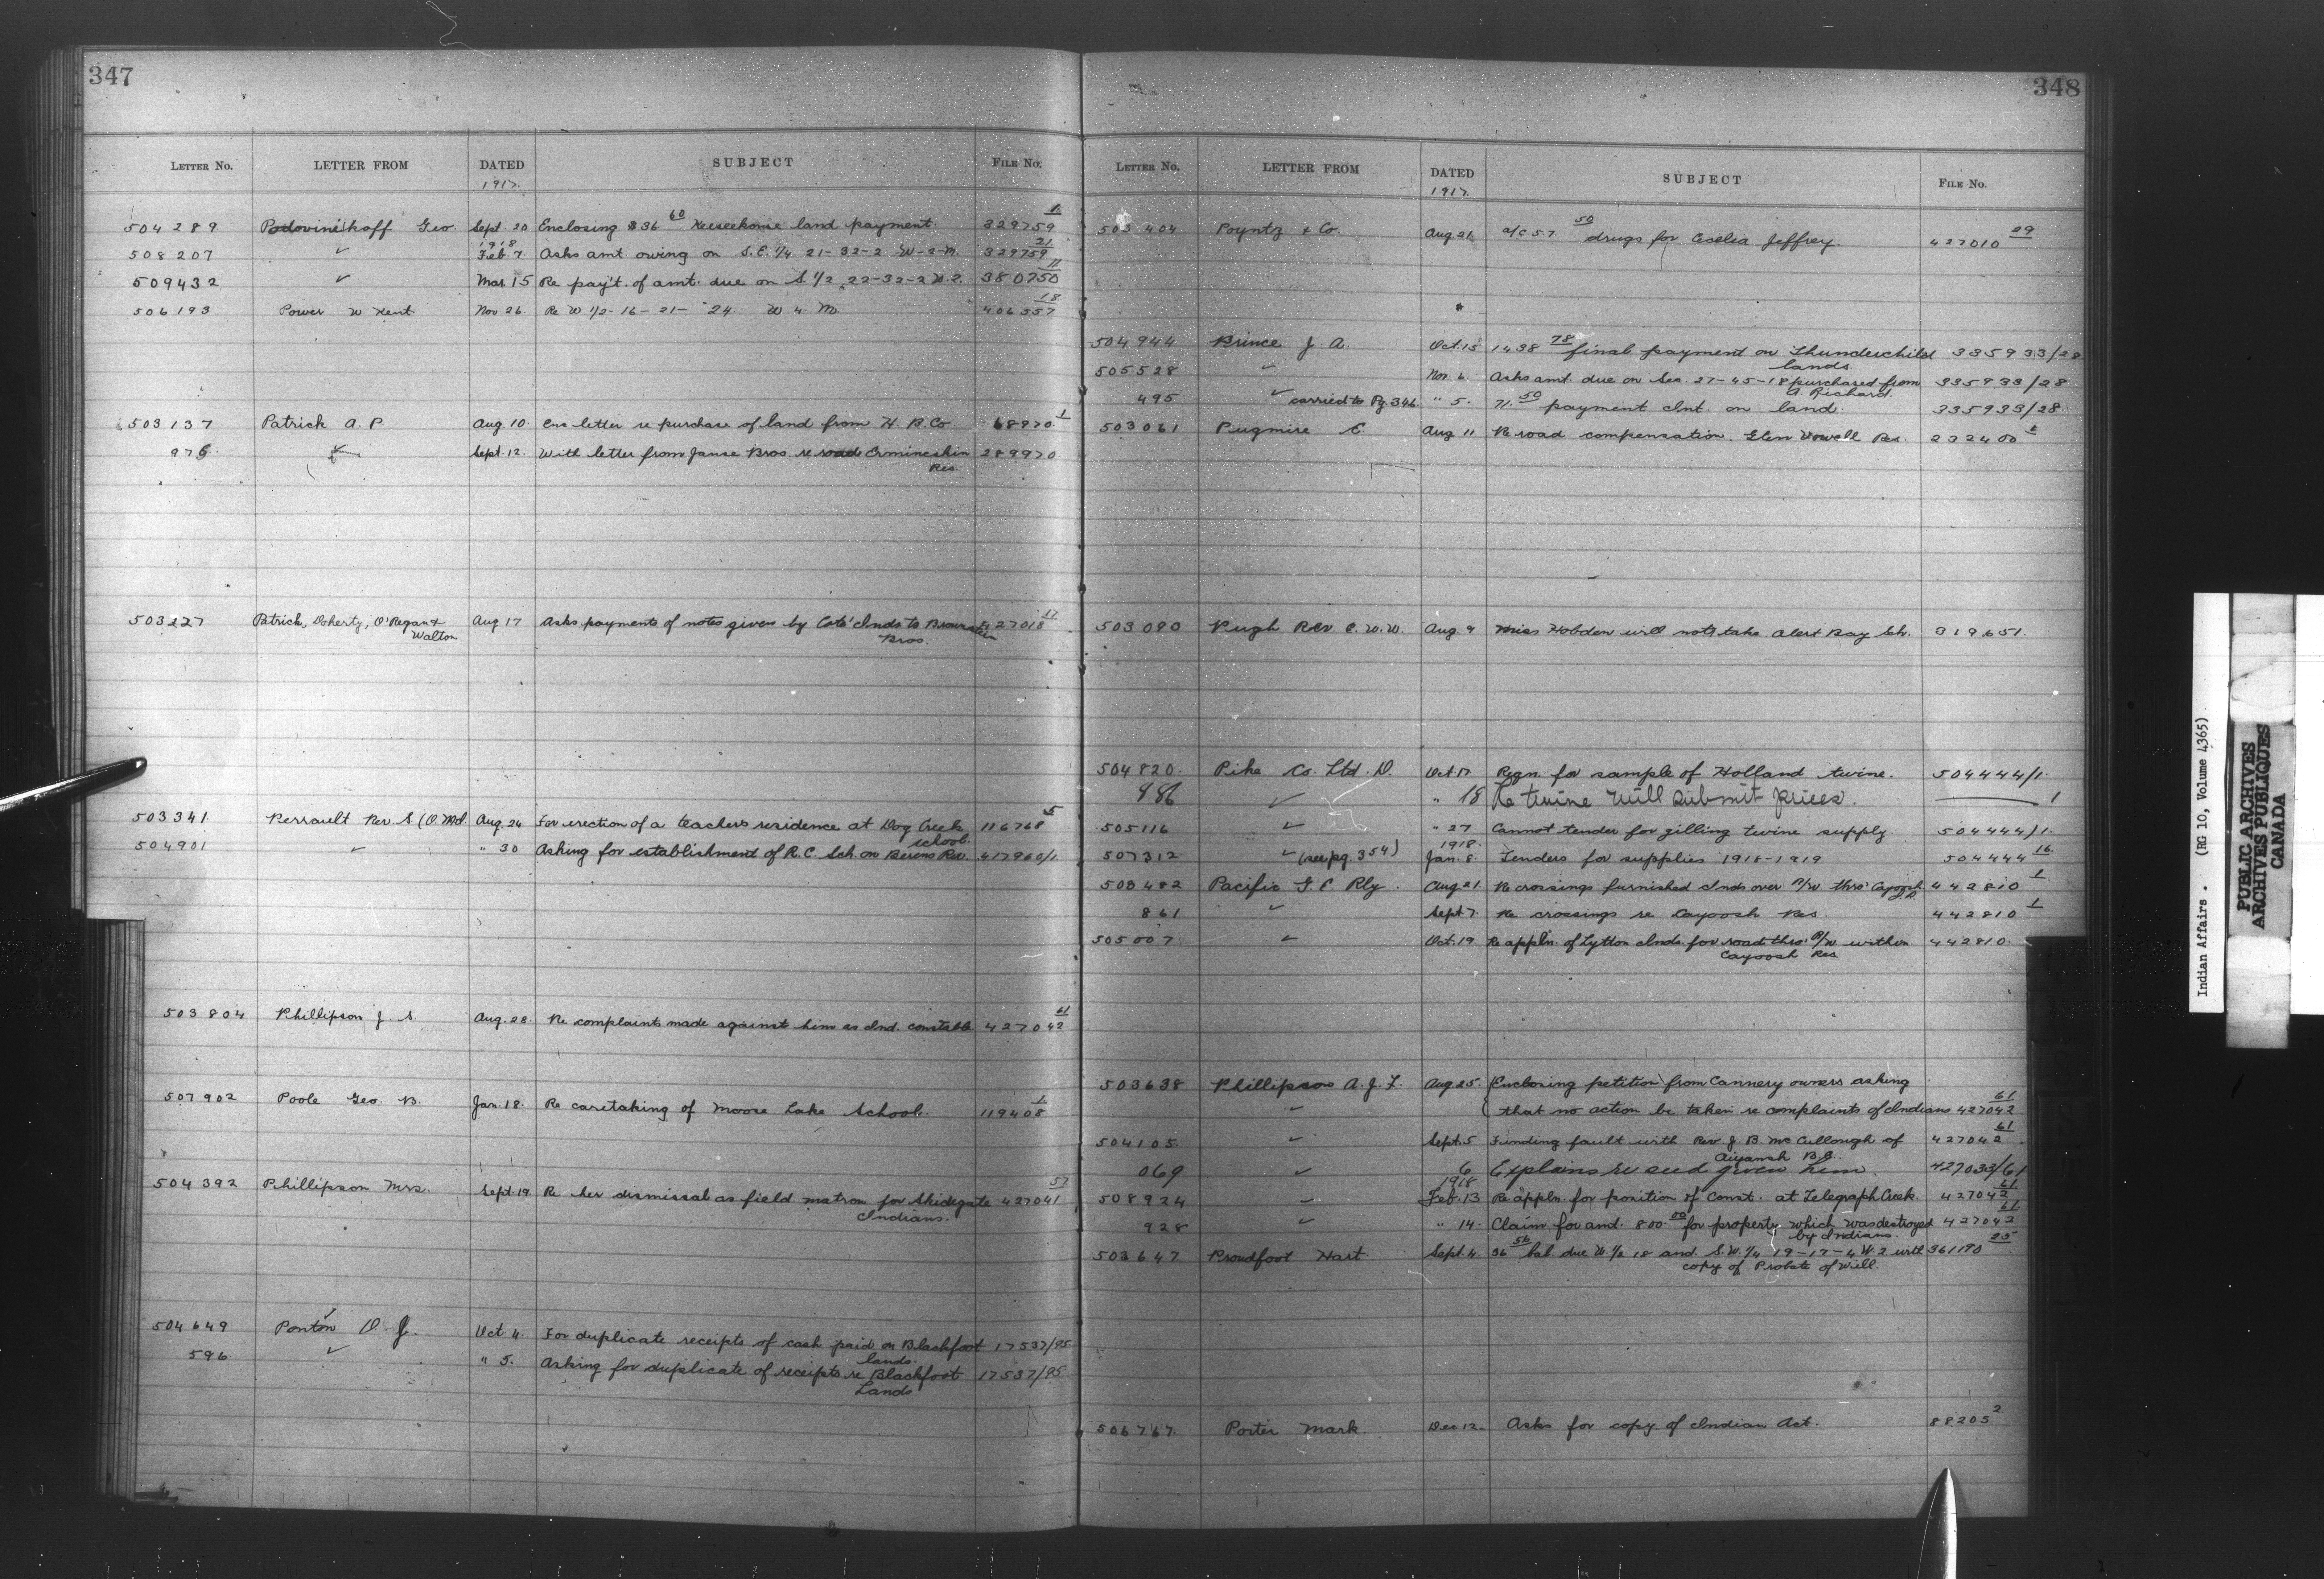 347
LETTER No. LETTER FROM DATED SUBJECT FILE No.
1917.
504289 Podovinikoff Geo. Sept. 20 Enclosing $36.60 Keeseekouse land payment. 329759 1
508207 ✓ 1918 Feb. 7. Asks amt. owing on S.E. 1/4 21-32-2-W-2-M. 329759 21
509432 ✓ Mar. 15 Re pay't. of amt. due on S. 1/2 22-32-2 W.2. 380750 11
506193 Power W. Kent Nov 26. Re W 1/2-16-21-24. W 4. M. 406557 18
503137 Patrick A. P. Aug. 10. Enc letter re purchase of land from H. B. Co. 68970 1
976 ✓ Sept. 12. With letter from Janse Bros. re road Ermineskin 289970
Res.
503227 Patrick, Doherty, O'Regan & Aug 17 Asks payments of notes given by Cote Inds to Brownstein 427018 17
Walton Bros.
503341 Perrault Rev S (O.M.I. Aug. 24 For erection of a teachers residence at Dog Creek 116768 5
school.
504901 ✓ " 30 Asking for establishment of R.C. Sch. on Berens Rev. 417960/1
503804 Phillipson J. S. Aug. 28. Re complaints made against him as Ind. constable 427042 61
507902 Poole Geo. B. Jan. 18. Re caretaking of Moose Lake School. 119408 1
504392 Phillipson Mrs. Sept. 19. Re her dismissal as field matron for Skidegate 427041 57
Indians.
504649 Ponton D. J. Oct 4. For duplicate receipts of cash paid on Blackfoot 17537/95
lands.
596 ✓ " 5. Asking for duplicate of receipts re Blackfoot 17537/95
Lands
348
LETTER No. LETTER FROM DATED SUBJECT FILE No.
1917.
503404 Poyntz & Co. Aug 21. a/c 57.50 drugs for Cecelia Jeffrey. 427010 29
504944 Prince J. A. Oct. 15 1438.78 final payment on Thunderchild 335933/28
lands.
505528 ✓ Nov. 6. Asks amt. due on Sec. 27-45-18 purchased from 335933/28
A. Richard.
495 ✓ carried to Pg. 346 " 5. 71.50 payment Int. on land. 335933/28
503061 Pugmire E. Aug 11 Re road compensation. Glen Vowell Res. 232400 2
503090 Pugh Rev. E. W. W. Aug 9 Miss Hobden will not take Alert Bay Sch. 319651.
504820. Pike Co. Ltd. D. Oct. 17 Reqn. for sample of Holland twine. 504444/1.
986 ✓ " 18 Re twine Will submit prices. 1
505116 ✓ " 27 Cannot tender for gilling twine supply. 504444/1.
507312 ✓ (see pg. 354) 1918. Jan. 8. Tenders for supplies 1918-1919 504444 16
503482 Pacific G. E Rly. Aug 21. Re crossings furnished Inds over R/W. thro' Cayoosh 442810 1
861 ✓ Sept 7. Re crossings re Cayoosh Res. 442810 1
505007 ✓ Oct. 19 Re appln. of Lytton Inds. for road thro' R/W within 442810.
Cayoosh Res
503638 Phillipson A. J. L. Aug 25. Enclosing petition from Cannery owners asking
✓ that no action be taken re complaints of Indians 427042 61
504105 ✓ Sept. 5 Finding fault with Rev. J. B. McCullough of 427042 61
Aiyansh B.C.
069 ✓ 6 Explains re seed given him. 427033/61
508924 ✓ 1918 Feb. 13 Re appln. for position of Const. at Telegraph Creek. 427042 61
928 ✓ " 14. Claim for amt. 800.00 for property which was destroyed 427042 61
by Indians.
503647 Proudfoot Hart Sept. 4. 36.56 bal. due W. 1/2 18 and. S.W. 1/4 19-17-4 W.2 with 361190 25
copy of Probate of Will.
506767. Porter Mark Dec 12. Asks for copy of Indian Act. 88205 2
Indian Affairs. (RG 10, Volume 4365)
PUBLIC ARCHIVES
ARCHIVES PUBLIQUES
CANADA